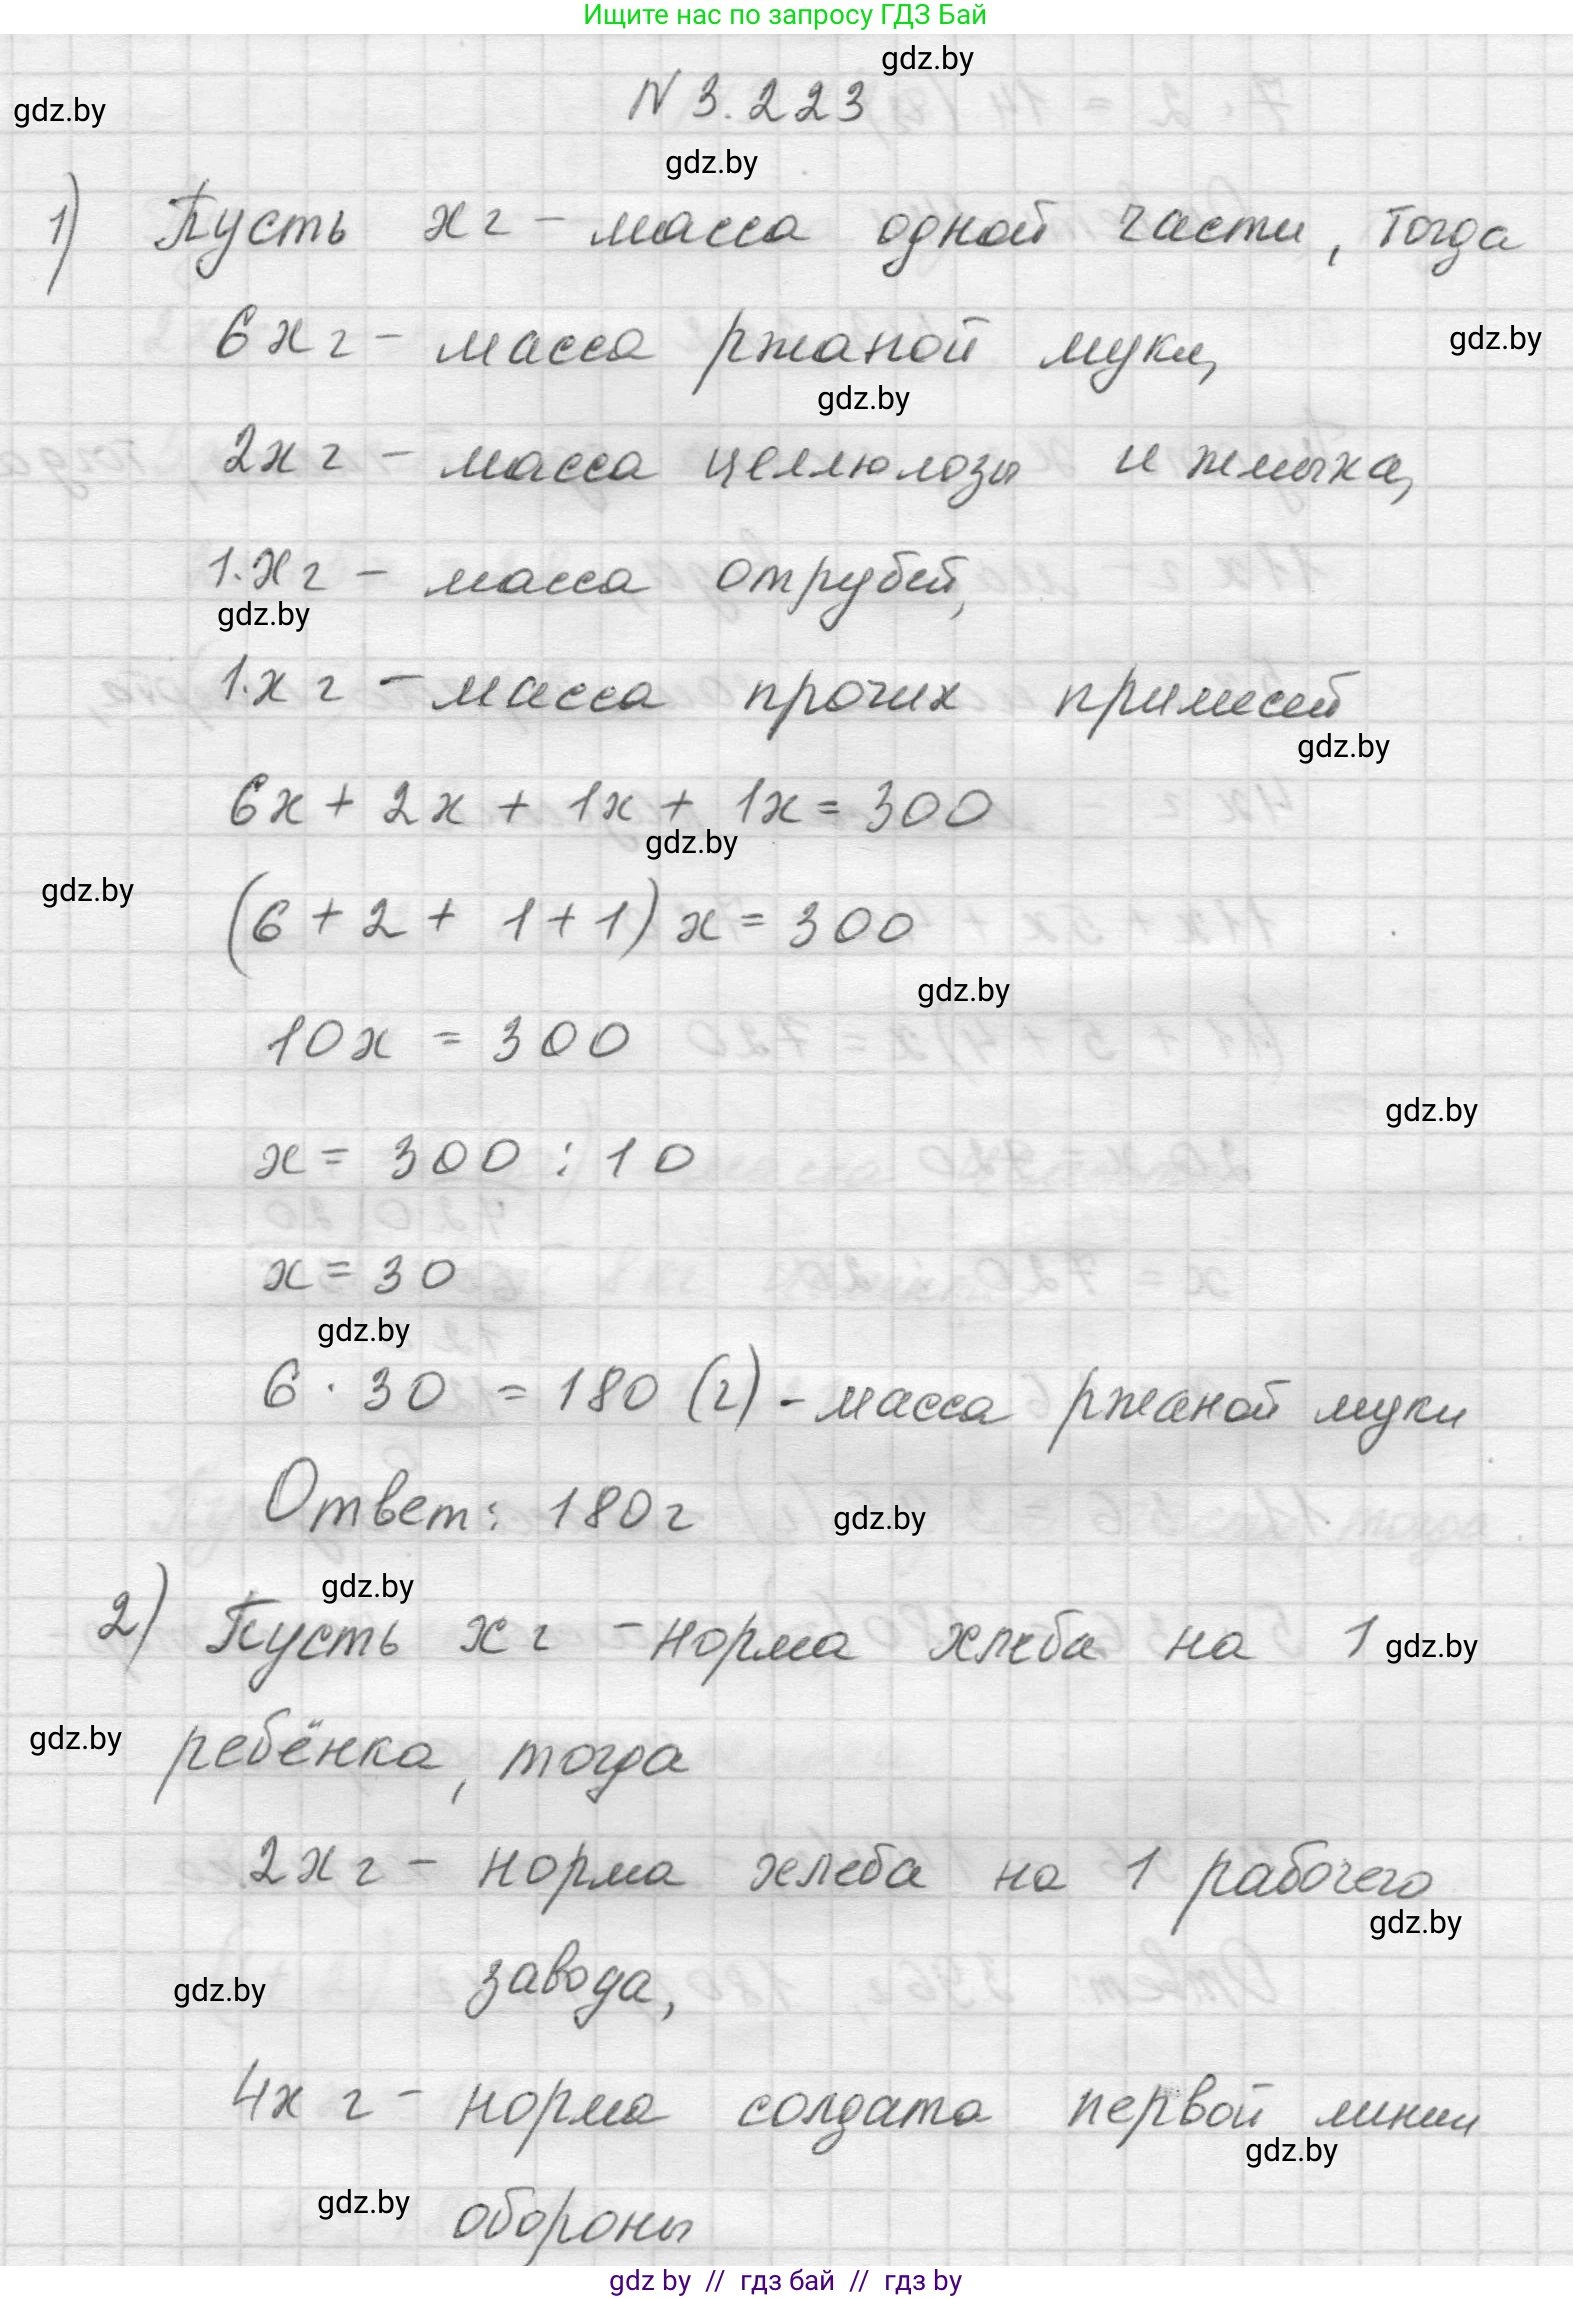 Ищите нас по запросу ГДЗ Бай
gdz.by
N 3.223
gdz.by
gdz.by
1) Пусть x г - масса одной части, тогда
6x г - масса ржаной муки,
gdz.by
gdz.by
2x г - масса целлюлозы и жмыха,
1·x г - масса отрубей,
gdz.by
1·x г - масса прочих примесей
gdz.by
6x + 2x + 1x + 1x = 300
gdz.by
gdz.by
(6 + 2 + 1 + 1) x = 300
gdz.by
10x = 300
gdz.by
x = 300 : 10
x = 30
gdz.by
6 · 30 = 180 (г) - масса ржаной муки
Ответ: 180 г
gdz.by
gdz.by
2) Пусть x г - норма хлеба на 1
gdz.by
gdz.by
ребёнка, тогда
2x г - норма хлеба на 1 рабочего
gdz.by
завода,
gdz.by
4x г - норма солдата первой линии
gdz.by
gdz.by
обороны
gdz by // гдз бай // гдз by